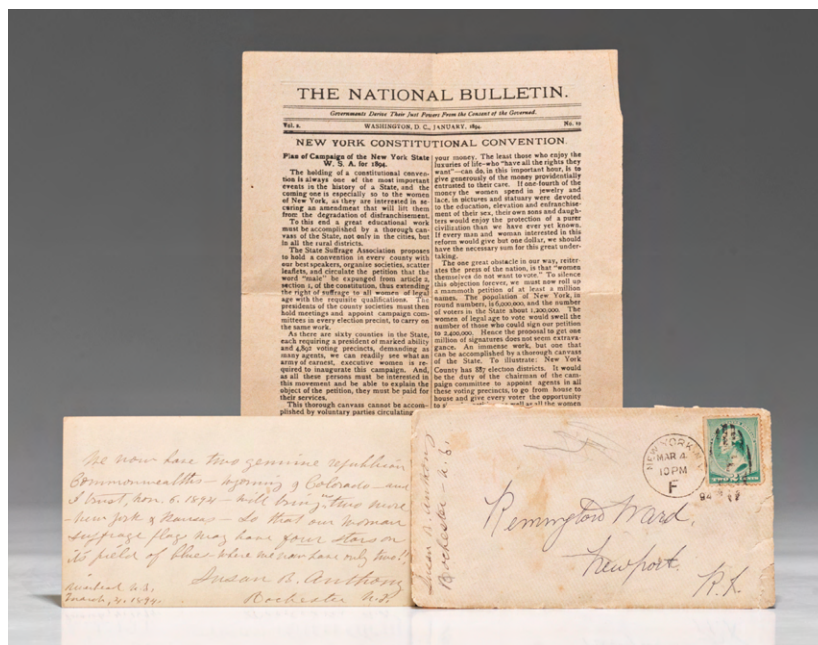 THE NATIONAL BULLETIN.
Governments Derive Their Just Powers From the Consent of the Governed.
Vol. 2. WASHINGTON, D. C., JANUARY, 1894. No. 10
NEW YORK CONSTITUTIONAL CONVENTION.
Plan of Campaign of the New York State
W. S. A. for 1894.
The holding of a constitutional conven-
tion is always one of the most important
events in the history of a State, and the
coming one is especially so to the women
of New York, as they are interested in se-
curing an amendment that will lift them
from the degradation of disfranchisement.
To this end a great educational work
must be accomplished by a thorough can-
vass of the State, not only in the cities, but
in all the rural districts.
The State Suffrage Association proposes
to hold a convention in every county with
our best speakers, organize societies, scatter
leaflets, and circulate the petition that the
word "male" be expunged from article 2,
section 1, of the constitution, thus extending
the right of suffrage to all women of legal
age with the requisite qualifications. The
presidents of the county societies must then
hold meetings and appoint campaign com-
mittees in every election precinct, to carry on
the same work.
As there are sixty counties in the State,
each requiring a president of marked ability
and 4,892 voting precincts, demanding as
many agents, we can readily see what an
army of earnest, executive women is re-
quired to inaugurate this campaign. And,
as all these persons must be interested in
this movement and be able to explain the
object of the petition, they must be paid for
their services.
This thorough canvass cannot be accom-
plished by voluntary parties circulating
your money. The least those who enjoy the
luxuries of life—who "have all the rights they
want"—can do, in this important hour, is to
give generously of the money providentially
entrusted to their care. If one-fourth of the
money the women spend in jewelry and
lace, in pictures and statuary were devoted
to the education, elevation and enfranchise-
ment of their sex, their own sons and daugh-
ters would enjoy the protection of a purer
civilization than we have ever yet known.
If every man and woman interested in this
reform would give but one dollar, we should
have the necessary sum for this great under-
taking.
The one great obstacle in our way, reiter-
ates the press of the nation, is that "women
themselves do not want to vote." To silence
this objection forever, we must now roll up
a mammoth petition of at least a million
names. The population of New York, in
round numbers, is 6,000,000, and the number
of voters in the State about 1,200,000. The
women of legal age to vote would swell the
number of those who could sign our petition
to 2,400,000. Hence the proposal to get one
million of signatures does not seem extrava-
gance. An immense work, but one that
can be accomplished by a thorough canvass
of the State. To illustrate: New York
County has 887 election districts. It would
be the duty of the chairman of the cam-
paign committee to appoint agents in all
these voting precincts, to go from house to
house and give every voter the opportunity
to as well as all the women
We now have two genuine republican
Commonwealths - Wyoming & Colorado - and
I trust, Nov. 6. 1894 - will bring two more
- New York & Kansas - so that our woman
suffrage flags may have four stars on
its field of blue - where we now have only two!!
Susan B. Anthony
Rochester N.Y.
March, 4. 1894.
Susan B. Anthony
Rochester - N.Y.
NEW YORK, N.Y.
MAR 4
10 PM
F
94
Remington Ward,
Newport.
R.I.